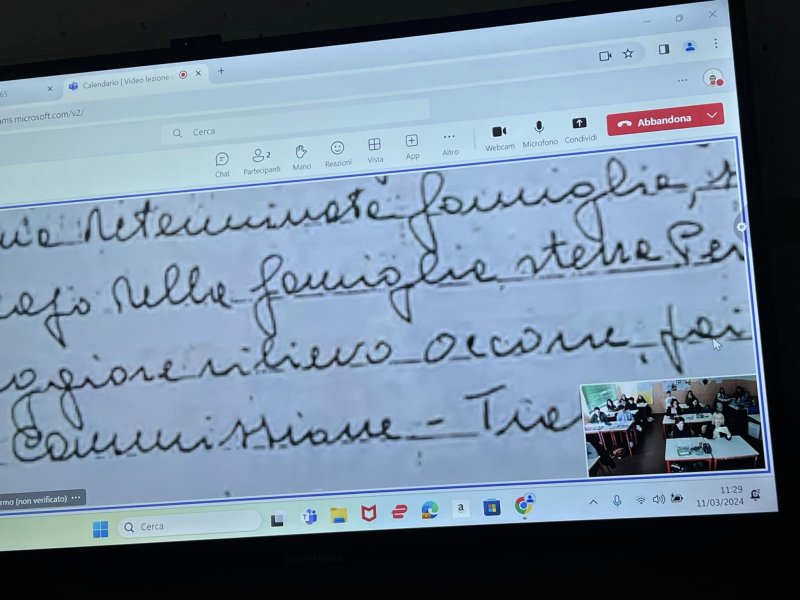 65
Calendario | Video lezione
ams.microsoft.com/v2/
Cerca
Chat
Partecipanti
2
Mano
Reazioni
Vista
App
Altro
Webcam
Microfono
Condividi
Abbandona
determinata famiglia,
della famiglia stessa Per
occorre, poi
Commissione -
rmo (non verificato)
Cerca
a
11:29
11/03/2024
SmartMedia